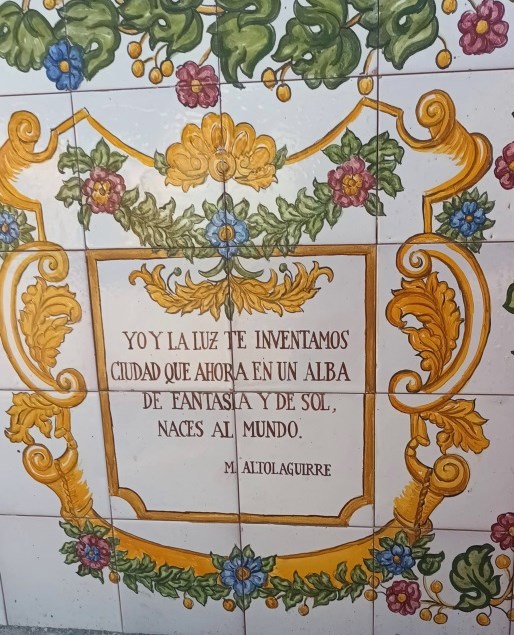 YO Y LA LUZ TE INVENTAMOS
CIUDAD QUE AHORA EN UN ALBA
DE FANTASIA Y DE SOL,
NACES AL MUNDO.
M. ALTOLAGUIRRE